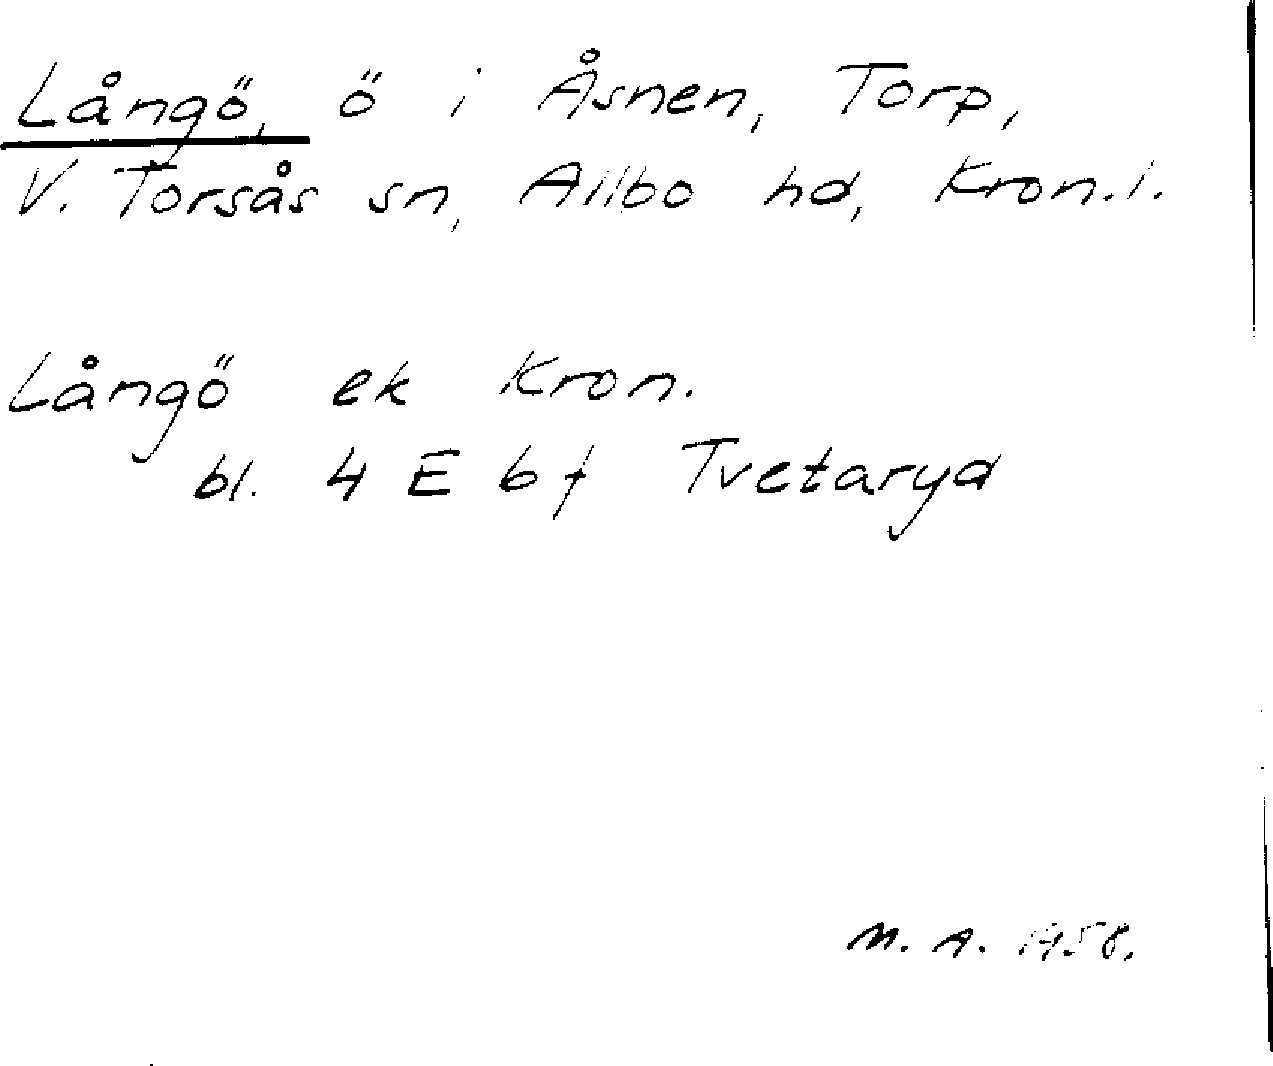 Långö, ö i Åsnen, Torp,
V. Torsås sn, Allbo hd, Kron.l.
Långö ek Kron.
bl. 4 E 6 f Tvetaryd
M. A. 1958.